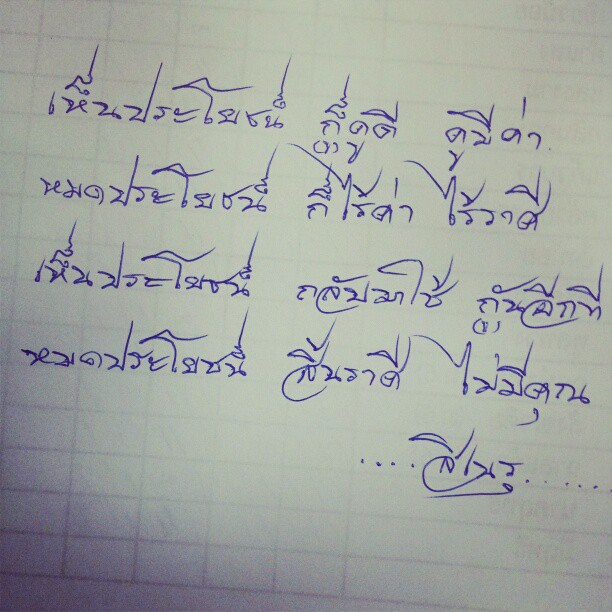 เห็นประโยชน์ ก็ดูดี ดูมีค่า
หมดประโยชน์ ก็ไร้ค่า ไร้ราศี
เห็นประโยชน์ กลับมาใช้ กันอีกที
หมดประโยชน์ สิ้นราศี ไม่มีคุณ
....สิเนรุ......